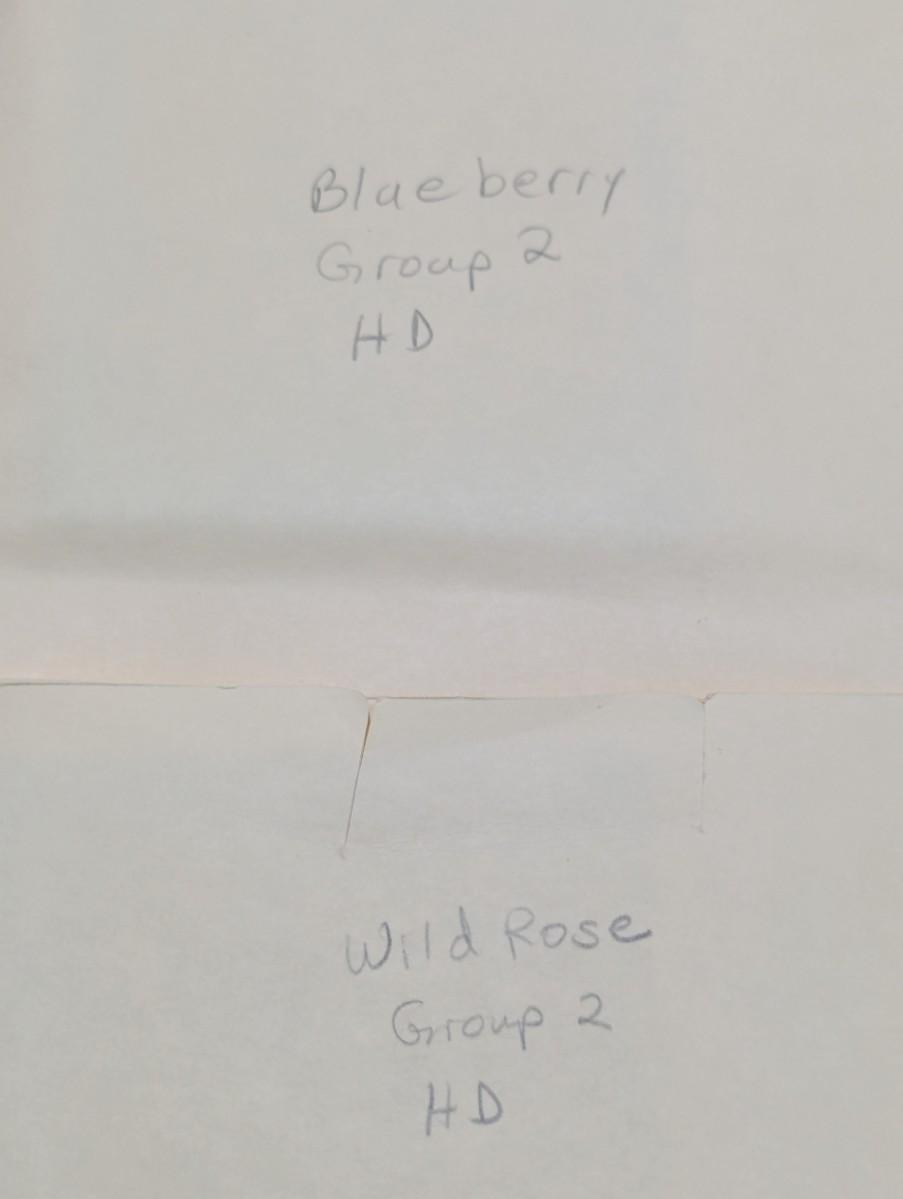 Blueberry
Group 2
HD
Wild Rose
Group 2
HD